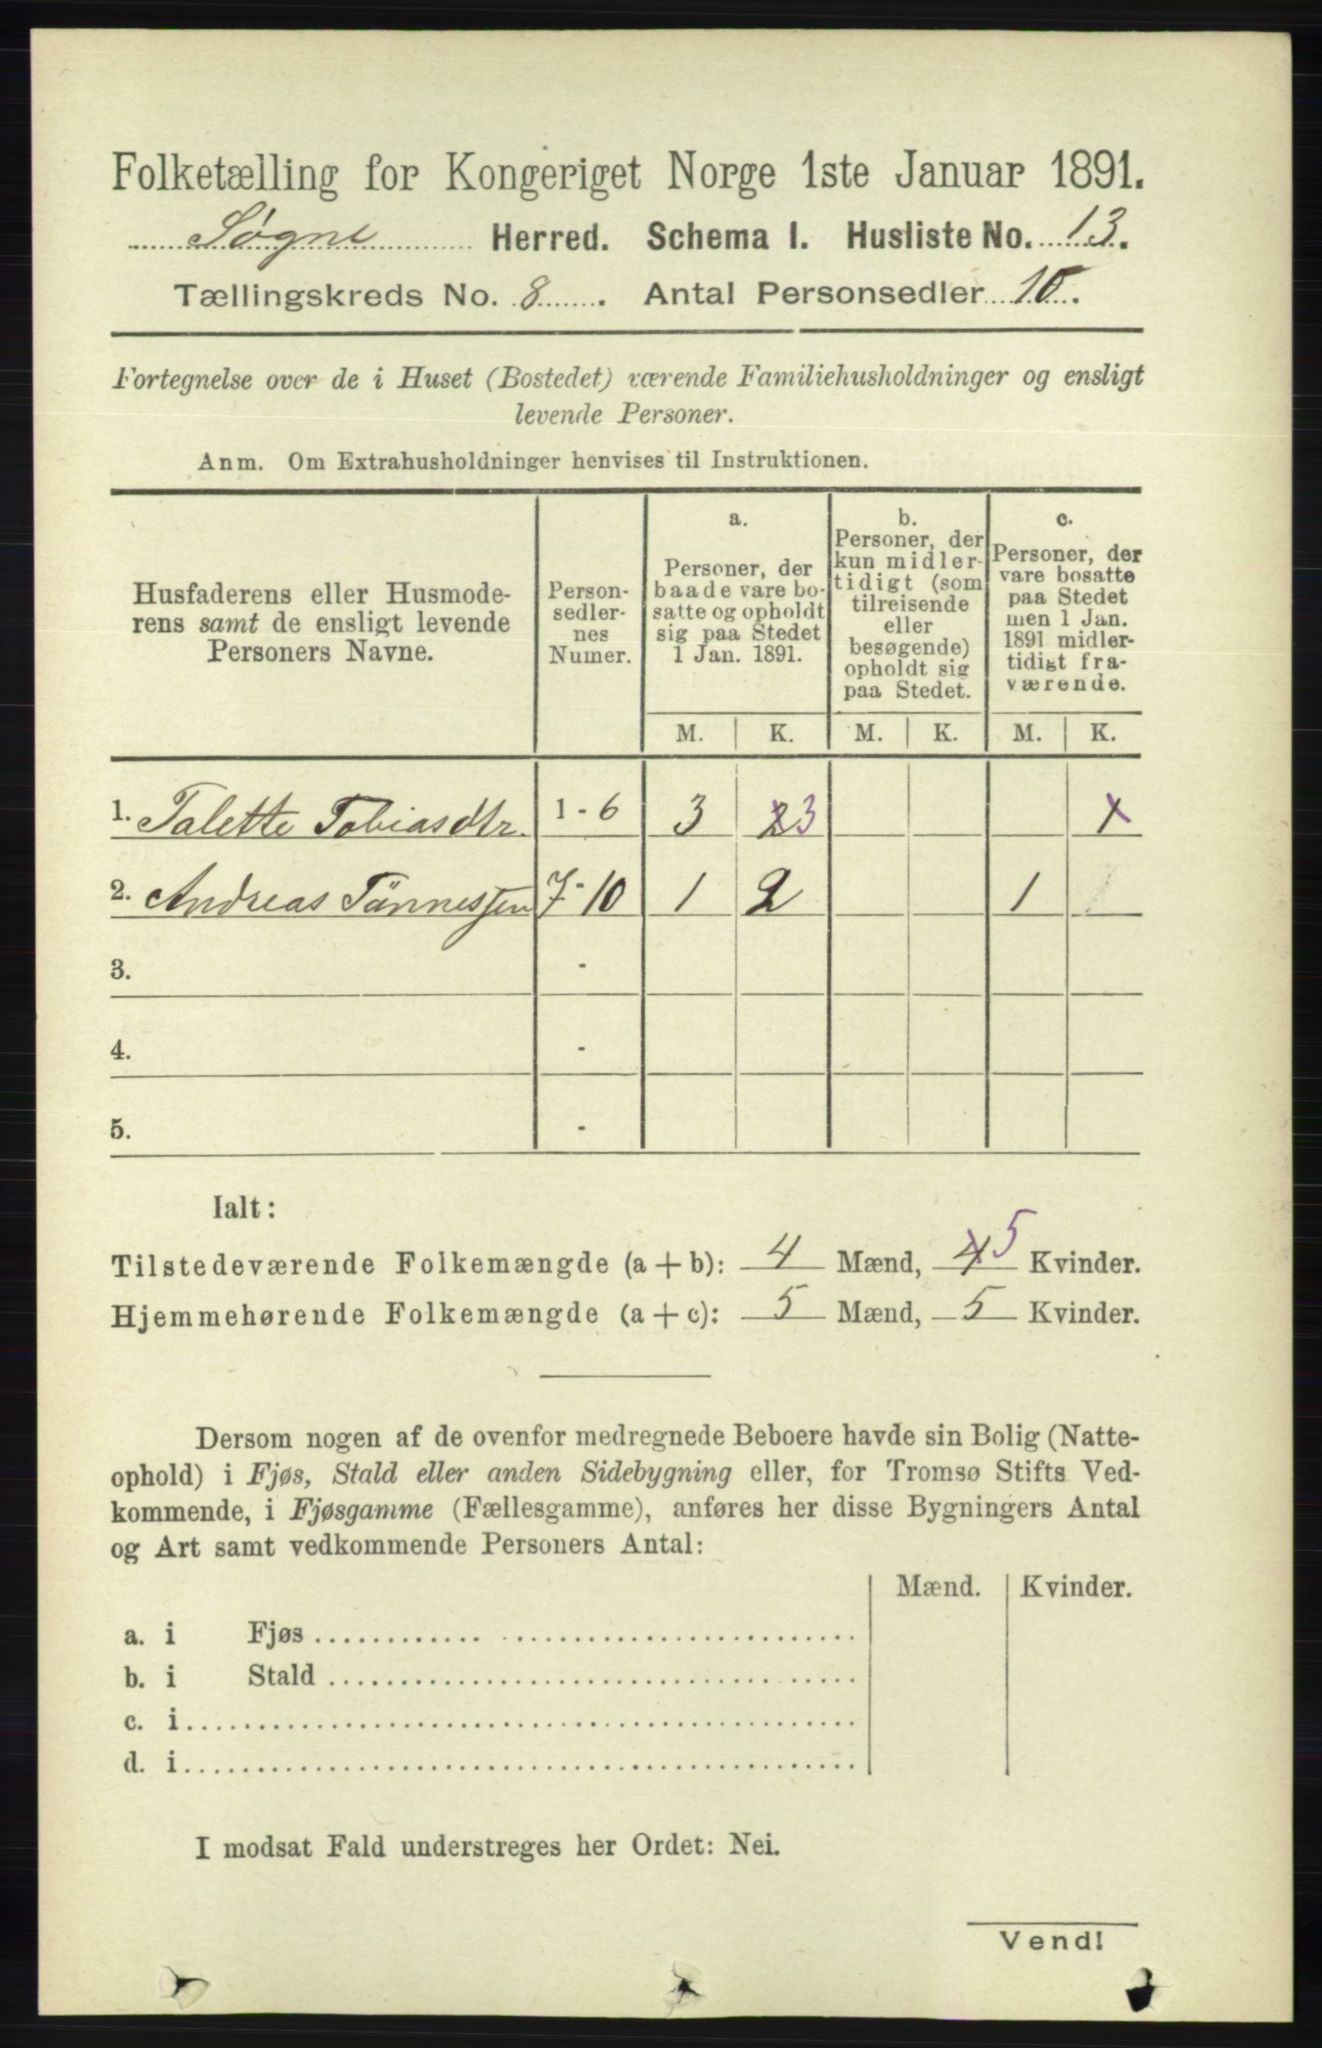 Folketælling for Kongeriget Norge 1ste Januar 1891.
Søgne Herred. Schema I. Husliste No. 13.
Tællingskreds No. 8. Antal Personsedler 10.
Fortegnelse over de i Huset (Bostedet) værende Familiehusholdninger og ensligt
levende Personer.
Anm. Om Extrahusholdninger henvises til Instruktionen.
Husfaderens eller Husmode-
rens samt de ensligt levende
Personers Navne.
Person-
sedler-
nes
Numer.
a.
Personer, der
baade vare bo-
satte og opholdt
sig paa Stedet
1 Jan. 1891.
b.
Personer, der
kun midler-
tidigt (som
tilreisende
eller
besøgende)
opholdt sig
paa Stedet.
c.
Personer, der
vare bosatte
paa Stedet
men 1 Jan.
1891 midler-
tidigt fra-
værende.
M. K. M. K. M. K.
1. Talette Tobiasdtr. 1 - 6 3 23
2. Andreas Tönnessen 7 - 10 1 2 1
3. -
4. -
5. -
Ialt:
Tilstedeværende Folkemængde (a + b): 4 Mænd, 45 Kvinder.
Hjemmehørende Folkemængde (a + c): 5 Mænd, 5 Kvinder.
Dersom nogen af de ovenfor medregnede Beboere havde sin Bolig (Natte-
ophold) i Fjøs, Stald eller anden Sidebygning eller, for Tromsø Stifts Ved-
kommende, i Fjøsgamme (Fællesgamme), anføres her disse Bygningers Antal
og Art samt vedkommende Personers Antal:
Mænd. Kvinder.
a. i Fjøs
b. i Stald
c. i
d. i
I modsat Fald understreges her Ordet: Nei.
Vend!